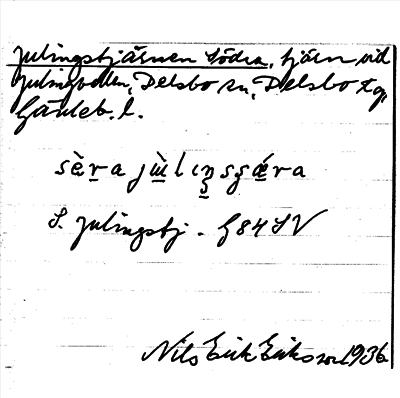 Julingstjärnen Södra, tjärn vid
Julingvallen, Delsbo sn, Delsbo tg,
Gävleb. l.
sèr̲a jɯ̲̀lɩŋ̲sʂǽra
S. Julingstj - G84SV
Nils Erik Eriksson 1936